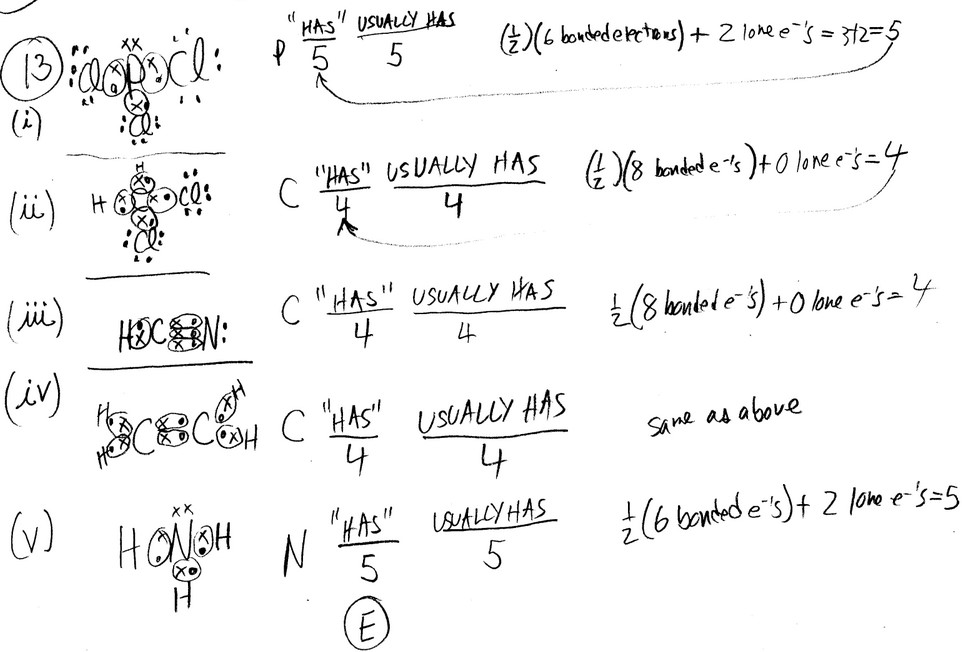 13
(i)
xx
Cl P Cl
Cl
P "HAS" USUALLY HAS
5 5
(1/2)(6 bonded electrons) + 2 lone e⁻'s = 3+2=5
(ii)
H
H C Cl
Cl
C "HAS" USUALLY HAS
4 4
(1/2)(8 bonded e⁻'s)+0 lone e⁻'s=4
(iii)
H C N:
C "HAS" USUALLY HAS
4 4
1/2(8 bonded e⁻'s)+0 lone e⁻'s=4
(iv)
H H
C C
H H
C "HAS" USUALLY HAS
4 4
same as above
(v)
xx
H N H
H
N "HAS" USUALLY HAS
5 5
1/2(6 bonded e⁻'s)+ 2 lone e⁻'s=5
E